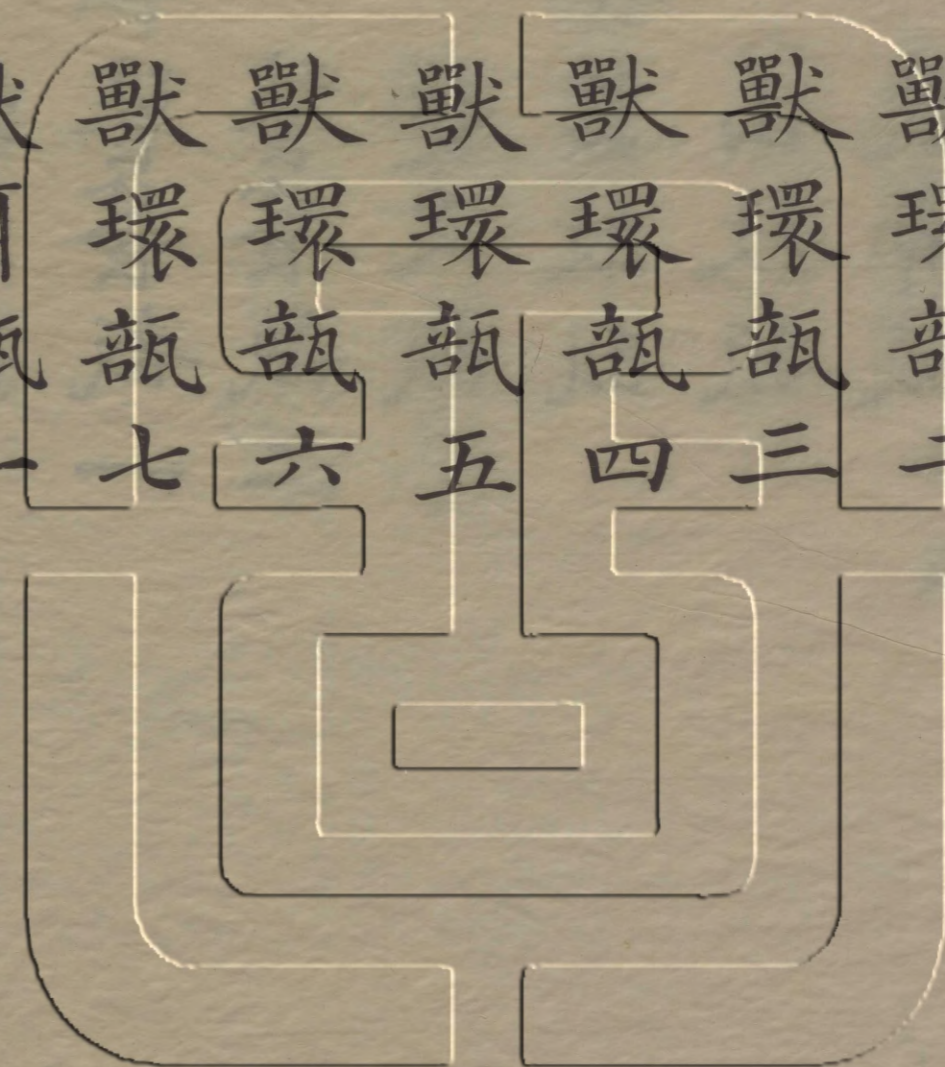 獸環瓿二
獸環瓿三
獸環瓿四
獸環瓿五
獸環瓿六
獸環瓿七